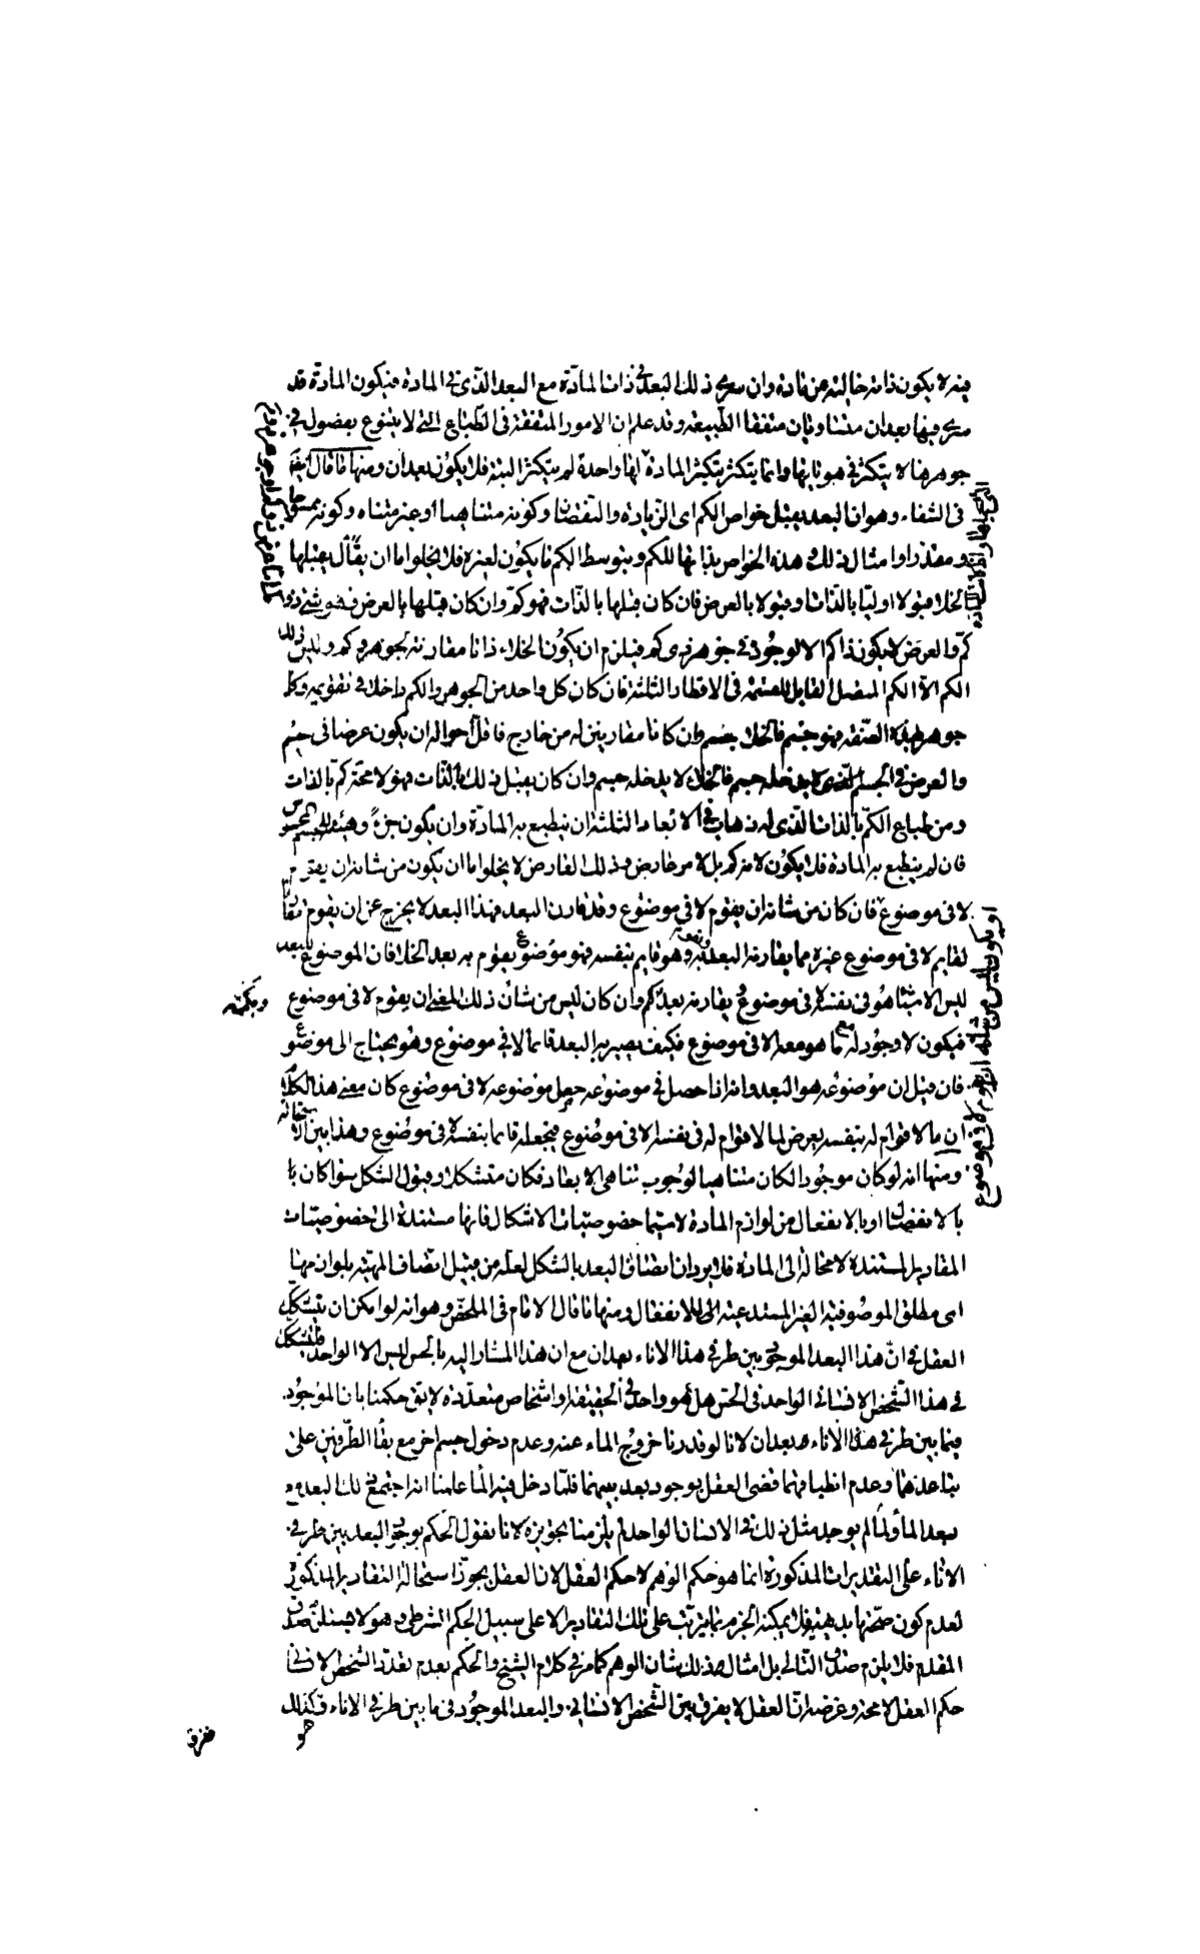 فيه لا يكون ذاته خالية عن مادة وان سرى ذلك البعد في ذات المادة مع البعد الذى في المادة فيكون المادة قد
سرى فيها بعدان متساويان متفقا الطبيعة وقد علم ان الامور المتفقة في الطباع التى لا يتنوع بفصول في
جوهرها لا يتكثر في هوياتها وانما يتكثر بتكثر المادة لها واحدة لم يتكثر البتة فلا يكون بعدان ومنها ما قال
في الشفاء وهو ان البعد يقبل خواص الكم اى الزيادة والنقصان وكونه متناهيا او غير متناه وكونه
ومقدرا وامثال ذلك وهذه الخواص بذاتها للكم وبتوسط الكم ما يكون لغيره فلا يخلوا ما ان يقال يقبلها
الخلا قبولا اوليا بالذات او قبولا بالعرض فان كان قبلها بالذات فهو كم وان كان قبلها بالعرض فهو شئ ذو
كم والعرض لا يكون ذا كم الا لوجود في جوهر ذى كم فيلزم ان يكون الخلاء ذاتا مقارنة لجوهر وكم وليس ذلك
الكم الا الكم المتصل القابل للقسمة في الاقطار الثلثة فان كان كل واحد من الجوهر والكم داخلا في تقويمه وكل
جوهر بهذه الصفة فهو جسم فالخلاء جسم وان كانا مقارنين له من خارج فاقل احواله ان يكون عرضا في جسم
والعرض في الجسم الذى لا يدخله جسم فالخلاء لا يدخله جسم وان كان يقبل ذلك بالذات فهو لا محة كم بالذات
ومن طباع الكم بالذات الذى له ذهاب في الابعاد الثلثة ان ينطبع به المادة وان يكون جزءً وهيئة للجسم المحسوس
فان لم ينطبع به المادة فلا يكون لانه كم بل لامر عارض وذلك العارض لا يخلوا ما ان يكون من شانه ان يقوم
لا في موضوع فان كان من شانه ان يقوم لا في موضوع وقد قارن البعد فهذا البعد لا يخرج عن ان يقوم
لقايم لا في موضوع غيره مما يقارنه البعد وهو قايم بنفسه فهو موضوع يقوم به بعد الخلا فان الموضوع للبعد
ليس الا شيئا هو في نفسه لا في موضوع يقارنه بعد كم وان كان ليس من شان ذلك المعنى ان يقوم لا في موضوع
فيكون لا وجود له مع ما هو معه الا في موضوع فكيف يصير به البعد قائما لا في موضوع وهو يحتاج الى موضوع
فان قيل ان موضوعه هو البعد وانه اذا حصل في موضوعه جعل موضوعه لا في موضوع كان معنى هذا الكلام
ان ما لا قوام له بنفسه يعرض لما لا قوام له في نفسه الا في موضوع فيجعله قائما بنفسه لا في موضوع وهذا بين
ومنها انه لو كان موجودا لكان متناهيا لوجوب تناهى الابعاد فكان متشكلا وقبول الشكل سواء كان
بالانفصال او بالانفعال من لوازم المادة لا سيما خصوصيات الاشكال فانها مستندة الى خصوصيات
المقادير المستندة لا محالة الى المادة فلا يرد ان اتصاف البعد بالشكل لعله من قبيل اتصاف المهية بلوازمها
اى مطلق الموصوفية الغير المستدعية الى الانفعال ومنها ما قال الامام في الملخص وهو انه لو امكن ان يتشكك
العقل في ان هذا البعد الموجود بين طرفى هذا الاناء بعدان مع ان هذا المشار اليه بالحس ليس الا الواحد فليتشكك
في هذا الشخص الانسانى الواحد في الحس هل هو واحد في الحقيقة او اشخاص متعددة لا يق حكمنا بان الموجود
فيما بين طرفى هذا الاناء بعدان لانا لو قدرنا خروج الماء عنه وعدم دخول جسم اخر مع بقاء الطرفين على
تباعدهما وعدم انطباقهما قضى العقل بوجود بعد بينهما فلما دخل فيه الماء علمنا انه اجتمع ذلك البعد مع
بعد الماء ولما لم يوجد مثل ذلك في الانسان الواحد لم يلزمنا تجويزه لانا نقول الحكم بوجود البعد بين طرفى
الاناء على التقديرات المذكورة انما هو حكم الوهم لا حكم العقل لان العقل يجوز استحالة التقادير المذكورة
لعدم كون صحتها بديهية فلا يمكنه الجزم بما يترتب على تلك التقادير الا على سبيل الحكم الشرطى وهو لا يستلزم صدق
المقدم فلا يلزم صدق التالى بل امثال ذلك شان الوهم كما مر في كلام الشيخ والحكم بعدم تعدد الشخص الانسانى
حكم العقل لا محة وغرضه ان العقل لا يفرق بين الشخص الانسانى والبعد الموجود في ما بين طرفى الاناء فكذلك
هو
او يكون ليس من شانه ان يقوم لا في موضوع